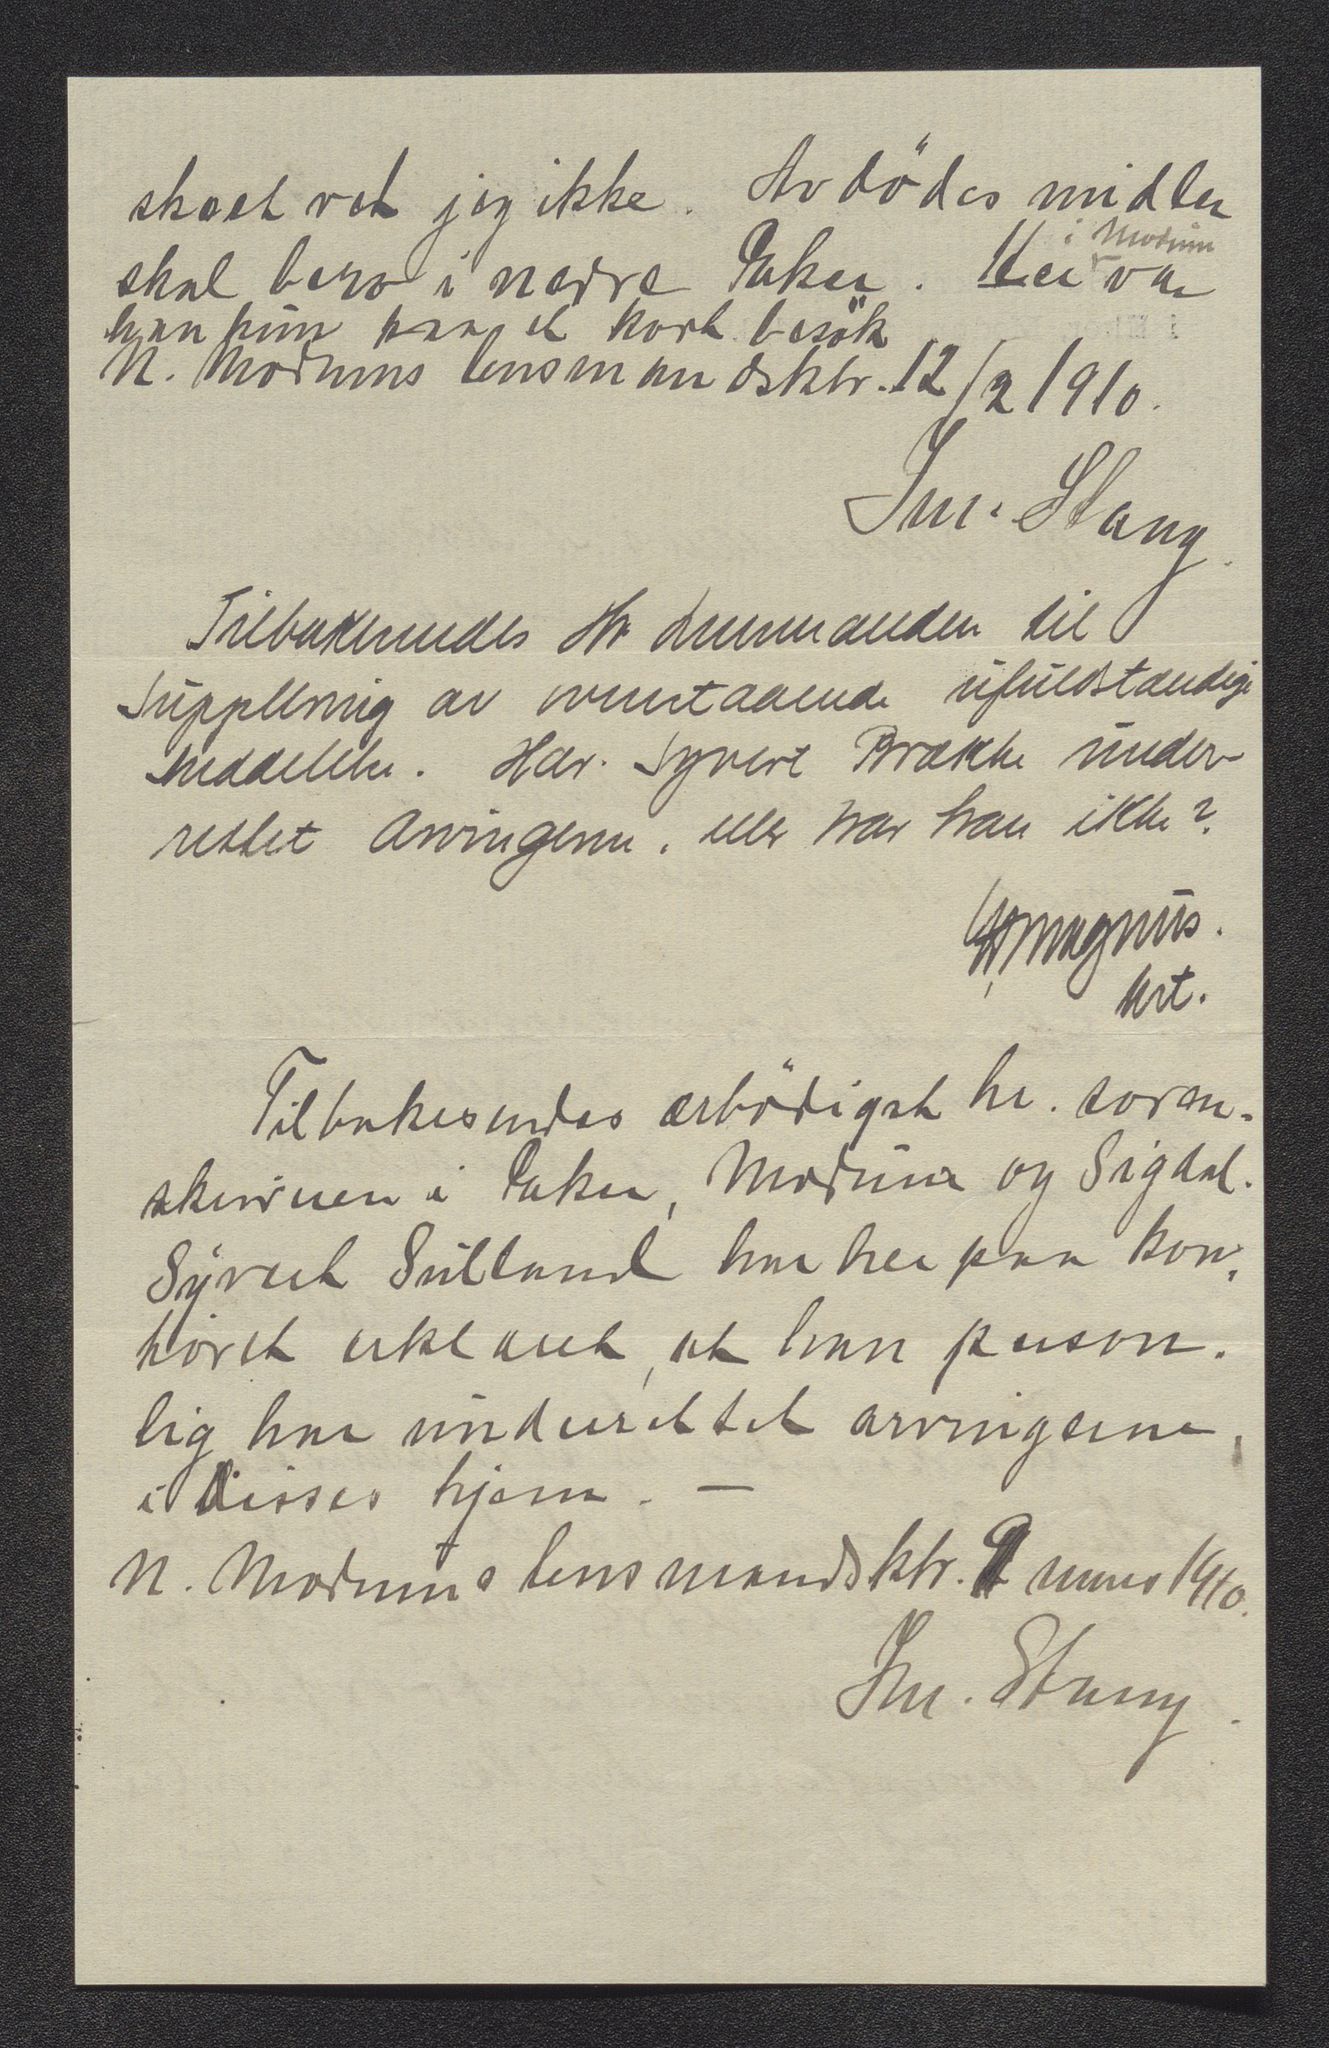 skeet vet jeg ikke. Avdödes midler
skal bero i nedre Eker. Her i Modum var
han kun paa et kort besök
N. Modums lensmandsktr. 12/2 1910.
Jm. Stang.
Tilbakesendes Hr Lensmanden til
Supplering av ovenstaaende ufuldstændige
meddelelse. Har Syvert Brække under-
rettet Arvingerne, eller har han ikke?
Magnus.
kst.
Tilbakesendes ærbödigst hr. soren-
skriveren i Eker, Modum og Sigdal.
Syvert Sulland har her paa kon-
toret erklæret, at han person-
lig har underettet arvingerne,
i disses hjem. —
N. Modums lensmandsktr. 9 mars 1910.
Jm. Stang.